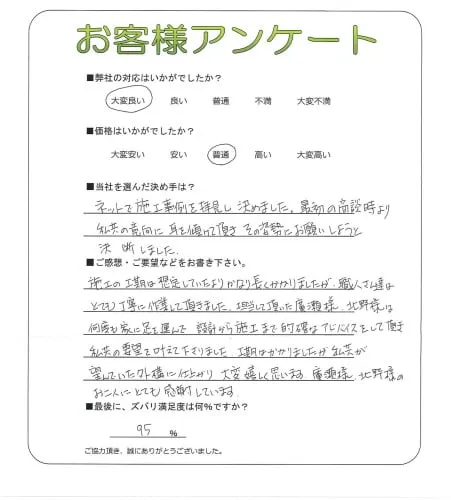 お客様アンケート
■弊社の対応はいかがでしたか？
大変良い 良い 普通 不満 大変不満
■価格はいかがでしたか？
大変安い 安い 普通 高い 大変高い
■当社を選んだ決め手は？
ネットで施工事例を拝見し決めました。最初の商談時より
私共の意向に耳を傾けて頂きその姿勢にお願いしようと
決断しました。
■ご感想・ご要望などをお書き下さい。
施工の工期は想定していたよりかなり長くかかりましたが、職人さん達は
とても丁寧に作業して頂きました。担当して頂いた廣瀬様、北野様は
何度も家に足を運んで設計から施工まで的確なアドバイスをして頂き
私共の要望を叶えて下さりました。工期はかかりましたが私共が
望んでいた外構に仕上がり大変嬉しく思います。廣瀬様、北野様の
お二人にとても感謝しています。
■最後に、ズバリ満足度は何％ですか？
95 %
ご協力頂き、誠にありがとうございました。